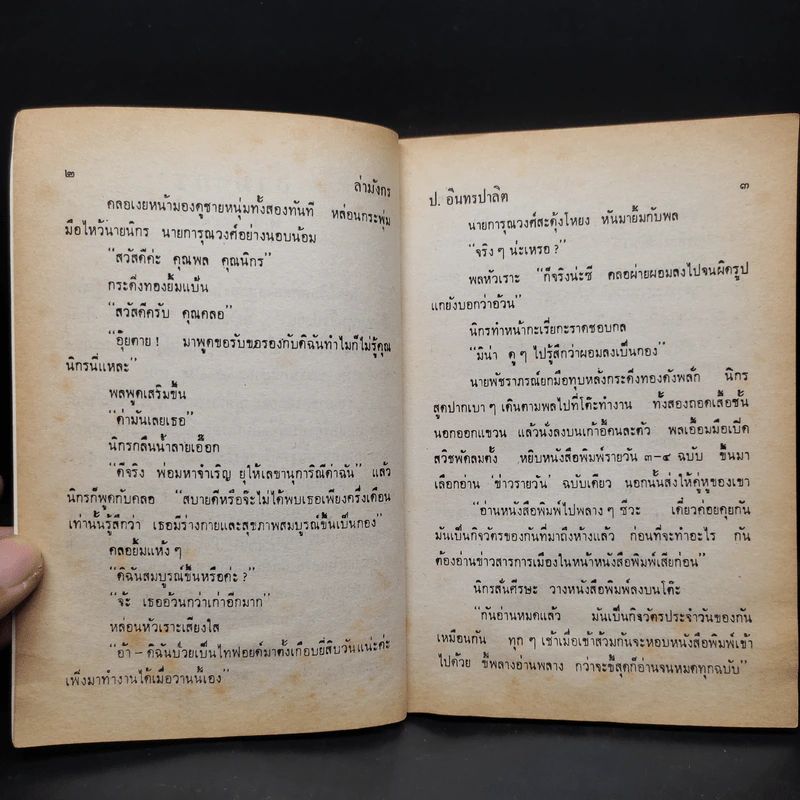 ๒
ล่ามังกร
คลอเงยหน้ามองดูชายหนุ่มทั้งสองทันที หล่อนกระพุ่ม
มือไหว้นายนิกร นายการุณวงศ์อย่างนอบน้อม
“สวัสดีค่ะ คุณพล คุณนิกร”
กระดิ่งทองยิ้มแป้น
“สวัสดีครับ คุณคลอ”
“อุ๊ยตาย ! มาพูดขอรับขอรองกับดิฉันทำไมก็ไม่รู้คุณ
นิกรนี่แหละ”
พลพูดเสริมขึ้น
“ด่ามันเลยเธอ”
นิกรกลืนน้ำลายเอื๊อก
“ดีจริง พ่อมหาจำเริญ ยุให้เลขานุการิณีด่าฉัน” แล้ว
นิกรก็พูดกับคลอ “สบายดีหรือจ๊ะไม่ได้พบเธอเพียงครึ่งเดือน
เท่านั้นรู้สึกว่า เธอมีร่างกายและสุขภาพสมบูรณ์ขึ้นเป็นกอง”
คลอยิ้มแห้ง ๆ
“ดิฉันสมบูรณ์ขึ้นหรือค่ะ ?”
“จ้ะ เธออ้วนกว่าเก่าอีกมาก”
หล่อนหัวเราะเสียงใส
“อ้า – ดิฉันป่วยเป็นไทฟอยด์มาตั้งเกือบยี่สิบวันแน่ะค่ะ
เพิ่งมาทำงานได้เมื่อวานนี้เอง”
ป. อินทรปาลิต
๓
นายการุณวงศ์สะดุ้งโหยง หันมายิ้มกับพล
“จริง ๆ น่ะเหรอ ?”
พลหัวเราะ “ก็จริงน่ะซี คลอผ่ายผอมลงไปจนผิดรูป
แกยังบอกว่าอ้วน”
นิกรทำหน้ากะเรี่ยกะราดชอบกล
“มิน่า ดู ๆ ไปรู้สึกว่าผอมลงเป็นกอง”
นายพัชราภรณ์ยกมือทุบหลังกระดิ่งทองดังพลั่ก นิกร
สูดปากเบา ๆ เดินตามพลไปที่โต๊ะทำงาน ทั้งสองถอดเสื้อชั้น
นอกออกแขวน แล้วนั่งลงบนเก้าอี้คนละตัว พลเอื้อมมือเปิด
สวิชพัดลมตั้ง หยิบหนังสือพิมพ์รายวัน ๓–๔ ฉบับ ขึ้นมา
เลือกอ่าน ‘ข่าวรายวัน’ ฉบับเดียว นอกนั้นส่งให้คู่หูของเขา
“อ่านหนังสือพิมพ์ไปพลาง ๆ ซีวะ เดี๋ยวค่อยคุยกัน
มันเป็นกิจวัตรของกันที่มาถึงห้างแล้ว ก่อนที่จะทำอะไร กัน
ต้องอ่านข่าวสารการเมืองในหน้าหนังสือพิมพ์เสียก่อน”
นิกรสั่นศีรษะ วางหนังสือพิมพ์ลงบนโต๊ะ
“กันอ่านหมดแล้ว มันเป็นกิจวัตรประจำวันของกัน
เหมือนกัน ทุก ๆ เช้าเมื่อเข้าส้วมกันจะหอบหนังสือพิมพ์เข้า
ไปด้วย ขี้พลางอ่านพลาง กว่าจะขี้สุดก็อ่านจนหมดทุกฉบับ”